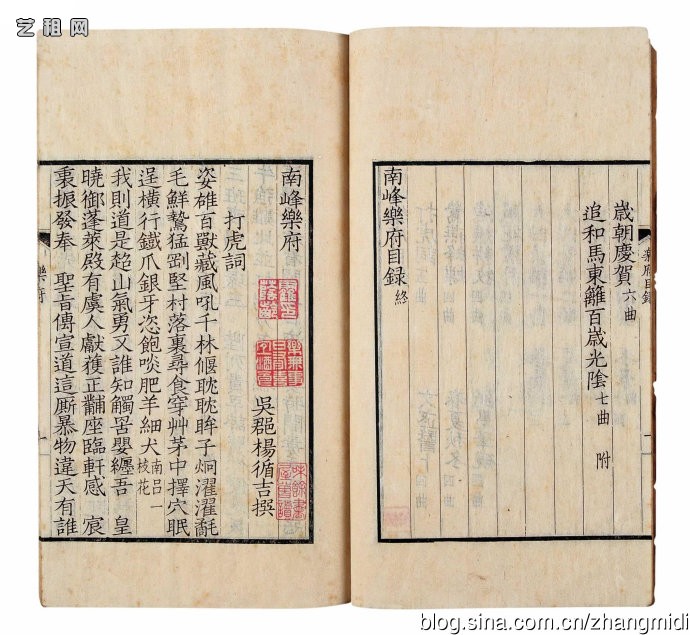 艺租网
歲朝慶賀 六曲
追和馬東籬百歲光陰 七曲 附
南峰樂府目錄 終
樂府目錄
南峰樂府
吳郡楊循吉撰
打虎詞
姿雄百獸藏風吼千林偃眈眈眸子炯濯濯毳
毛鮮鷙猛剛堅村落裏尋食穿艸茅中擇穴眠
逞橫行鐵爪銀牙恣飽啖肥羊細犬 南呂一枝花
我則道是趂山氣勇又誰知觸罟嬰纏吾 皇
曉御蓬萊殿有虞人獻獲正黼座臨軒感 宸
衷振發奉 聖旨傳宣道這厮暴物違天有誰
樂府
blog.sina.com.cn/zhangmidi